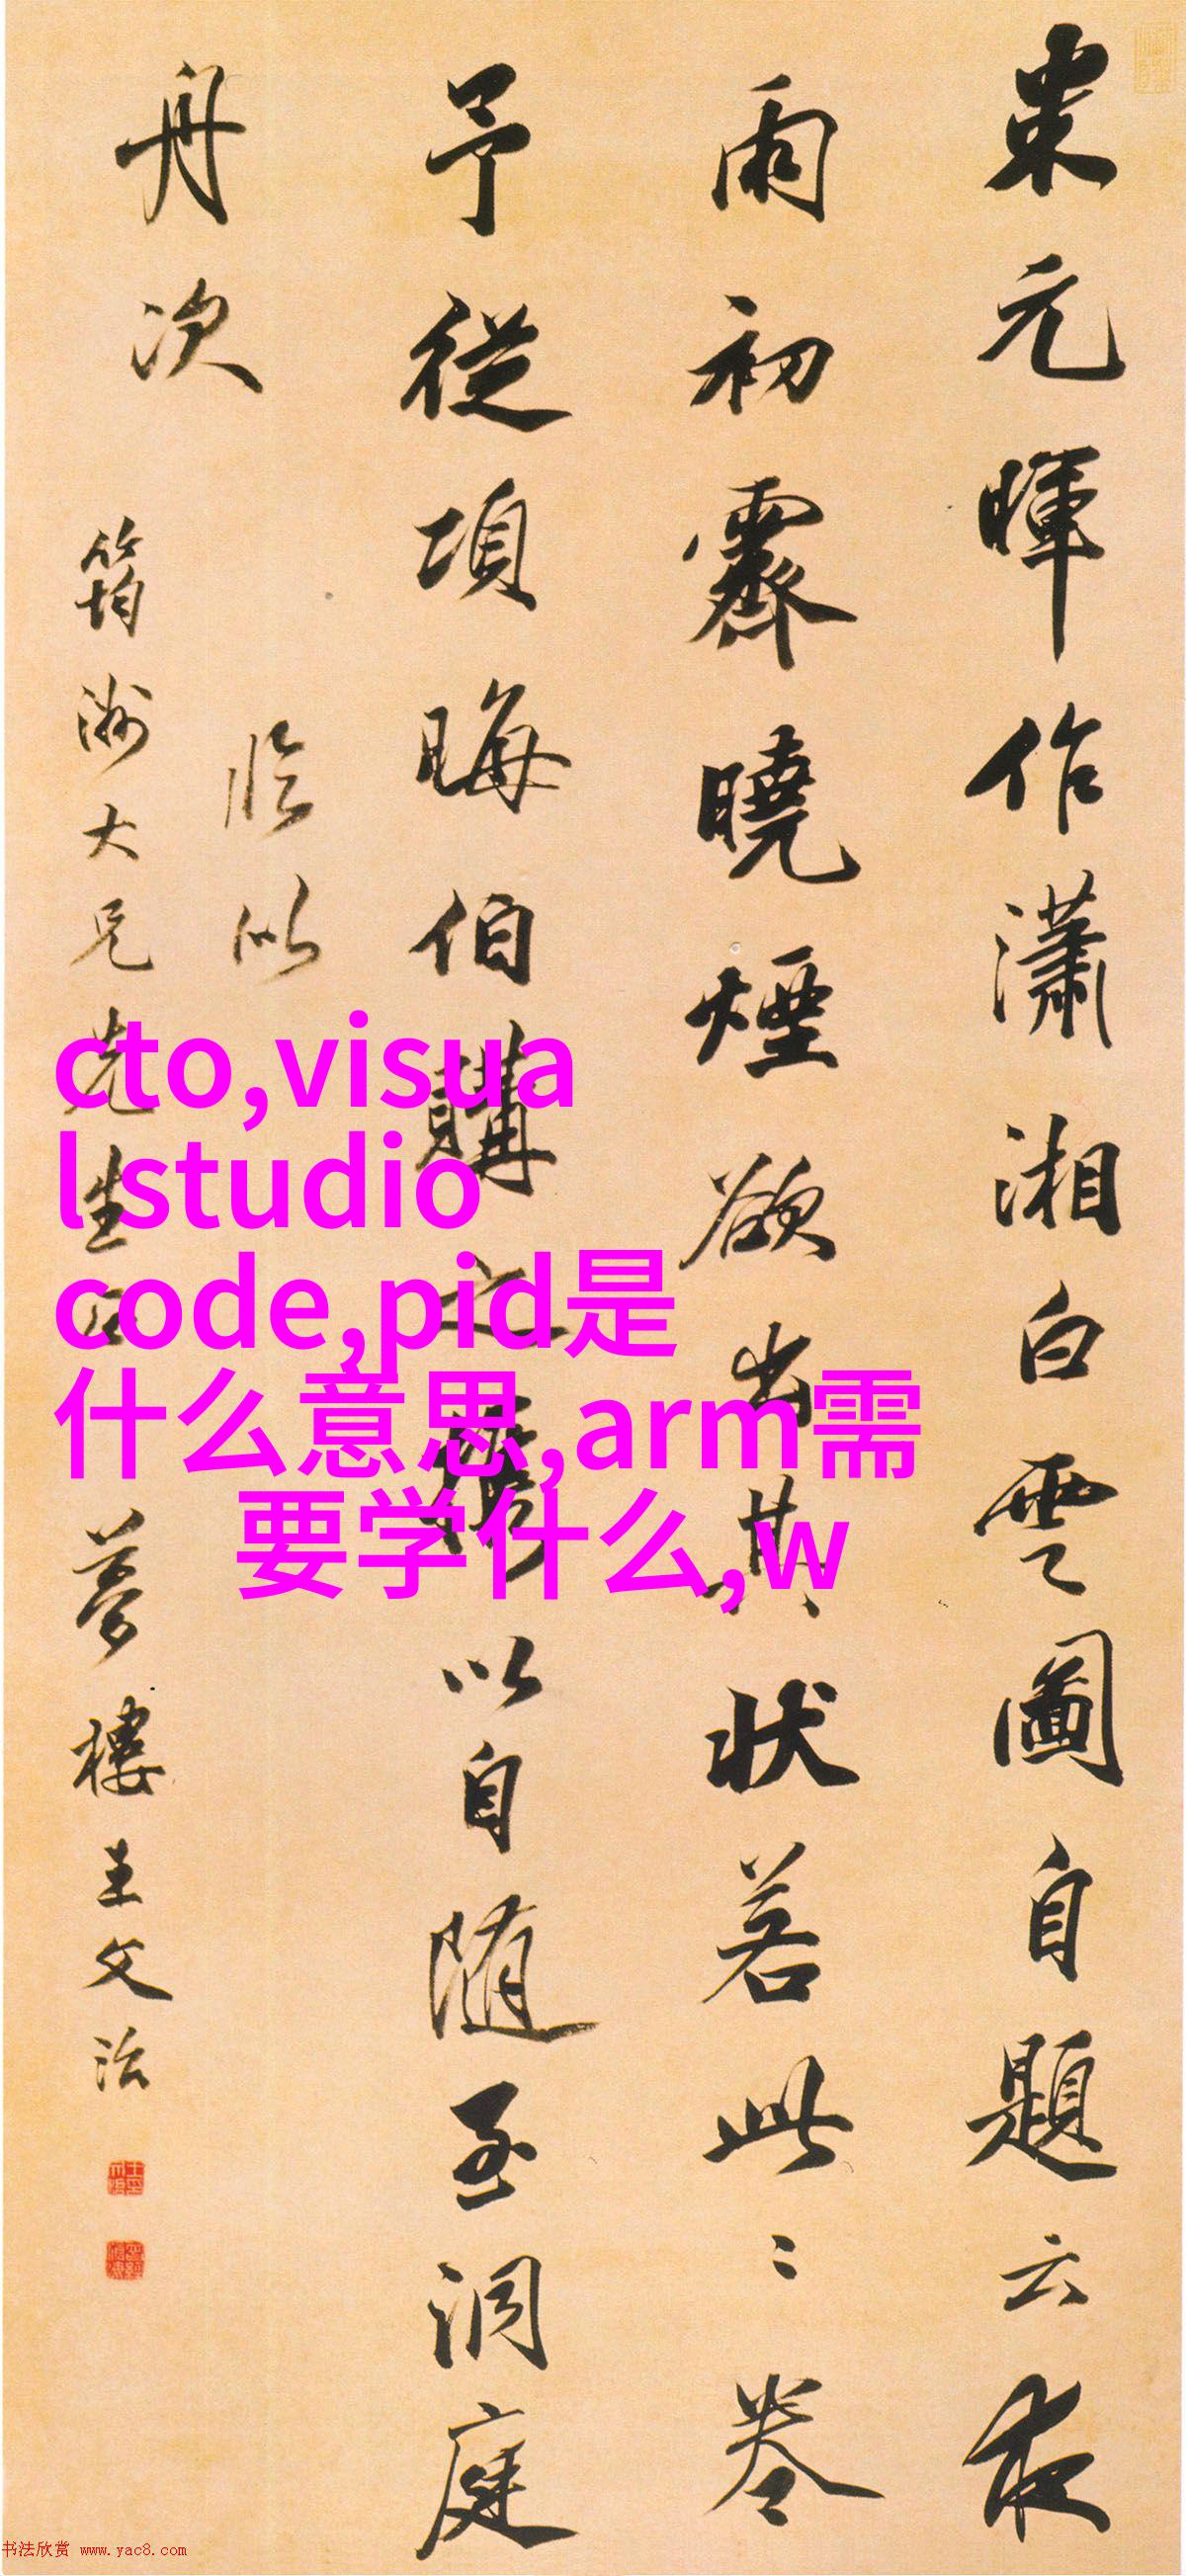 米元暉作瀟湘白雲圖自題云夜
雨初霽曉煙欲出其狀若此〻卷
予從項晦伯購之攜以自随至洞庭
舟次
臨似
筠洲大兄先生 夢樓王文治
cto,visua
lstudio
code,pid是
什么意思,arm需
要学什么,w
书法欣赏 www.yac8.com